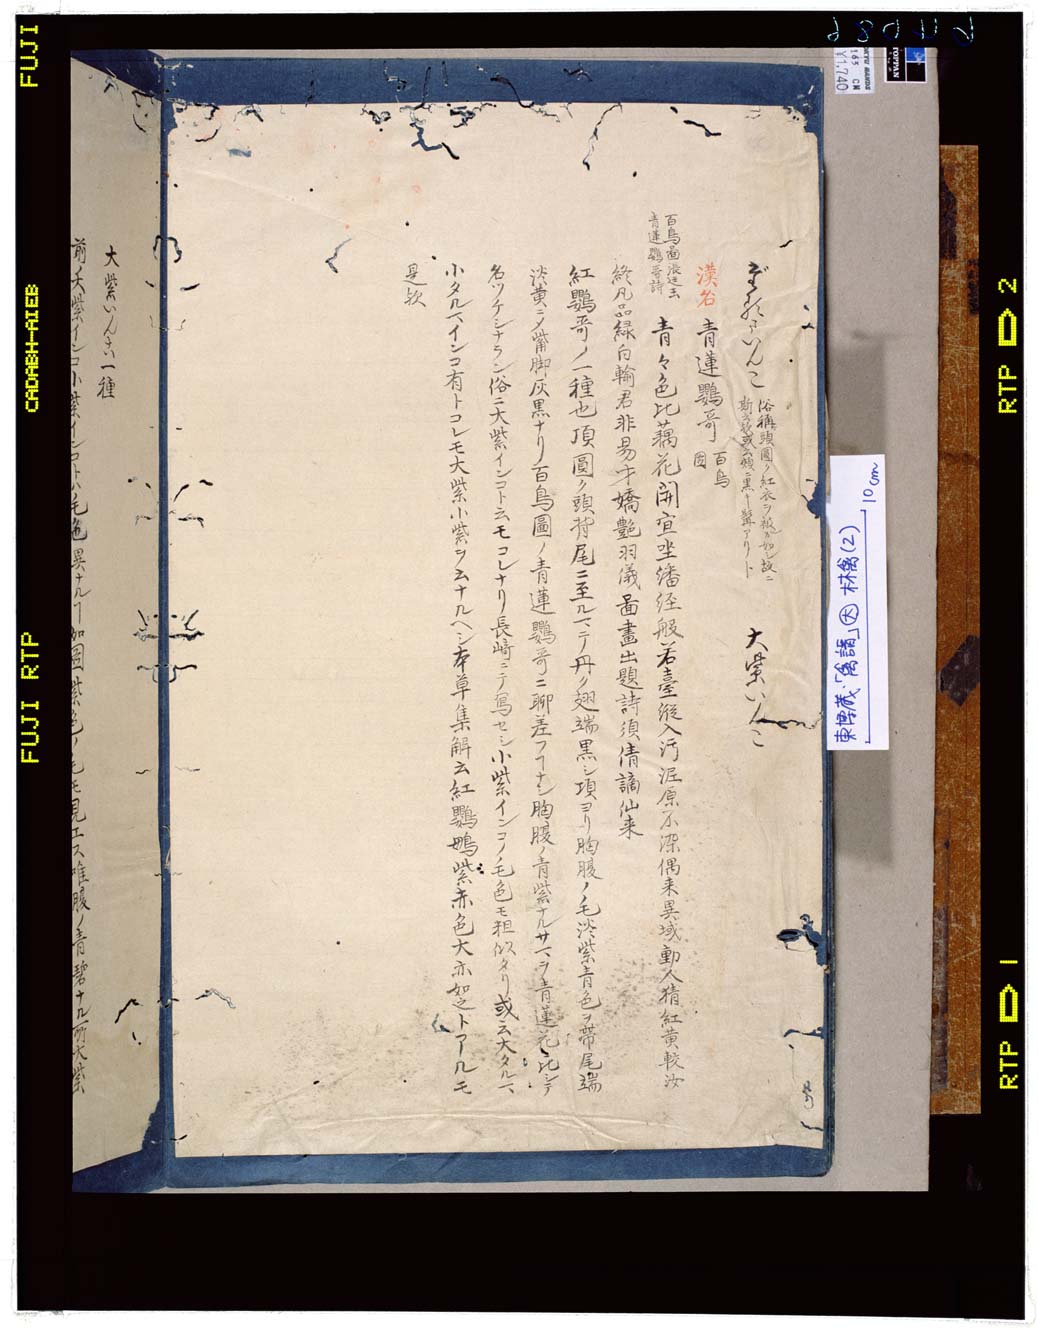 だるまいんこ
俗稱頭圓ク紅衣ヲ被ルガ如シ故ニ
斯云又或云頬ニ黒キ髯アリト
大紫いんこ
漢名
青蓮鸚哥
百鳥
圖
百鳥圖張廷玉
青蓮鸚哥詩
青々色比藕花開宜坐繙経般若臺縦入汚泥原不染偶来異域動人猜紅黄較汝
終凡品緑白輸君非易才嬌艶羽儀啚畫出題詩須倩謫仙来
紅鸚哥ノ一種也頂圓ク頭背尾ニ至ルマテ丹ク翅端黒シ項ヨリ胸腹ノ毛淡紫青色ヲ帯尾端
淡黄ニメ觜脚灰黒ナリ百鳥圖ノ青蓮鸚哥ニ聊差フヿナシ胸腹ノ青紫ナルサマヲ青蓮花ニ比シテ
名ツケシナラン俗ニ大紫インコト云モコレナリ長崎ニテ寫セシ小紫インコノ毛色モ粗似タリ或云大タルマ
小タルマインコ有トコレモ大紫小紫ヲ云ナルヘシ本草集解云紅鸚鵡紫赤色大亦如之トアールモ
是歟
大紫いんこ一種
前ノ大紫インコ小紫インコトハ毛色異ナルヿ如圖紫色ノ毛モ見エス唯腹ノ青碧ナル所大紫
東博蔵・「禽譜」㊅ 林禽(2)
10cm
FUJI
CADABH-AIEB
FUJI RTP
RTP D 2
RTP D 1
TOPPAN
TOKYU HANDS
163 CM
¥1,740